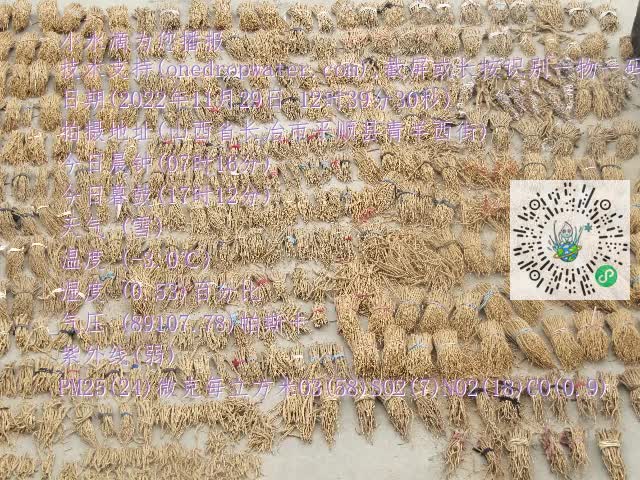 小水滴为您播报
技术支持(onedropwater.com) 截屏或长按识别一物一码
日期(2022年11月29日 12时39分30秒)
拍摄地址(山西省长治市平顺县青羊西街)
今日晨钟(07时16分)
今日暮鼓(17时12分)
天气 (雪)
温度 (-3.0℃)
湿度 (0.53)百分比
气压 (89107.78)帕斯卡
紫外线(弱)
PM25(24)微克每立方米O3(58)SO2(7)NO2(18)CO(0.9)